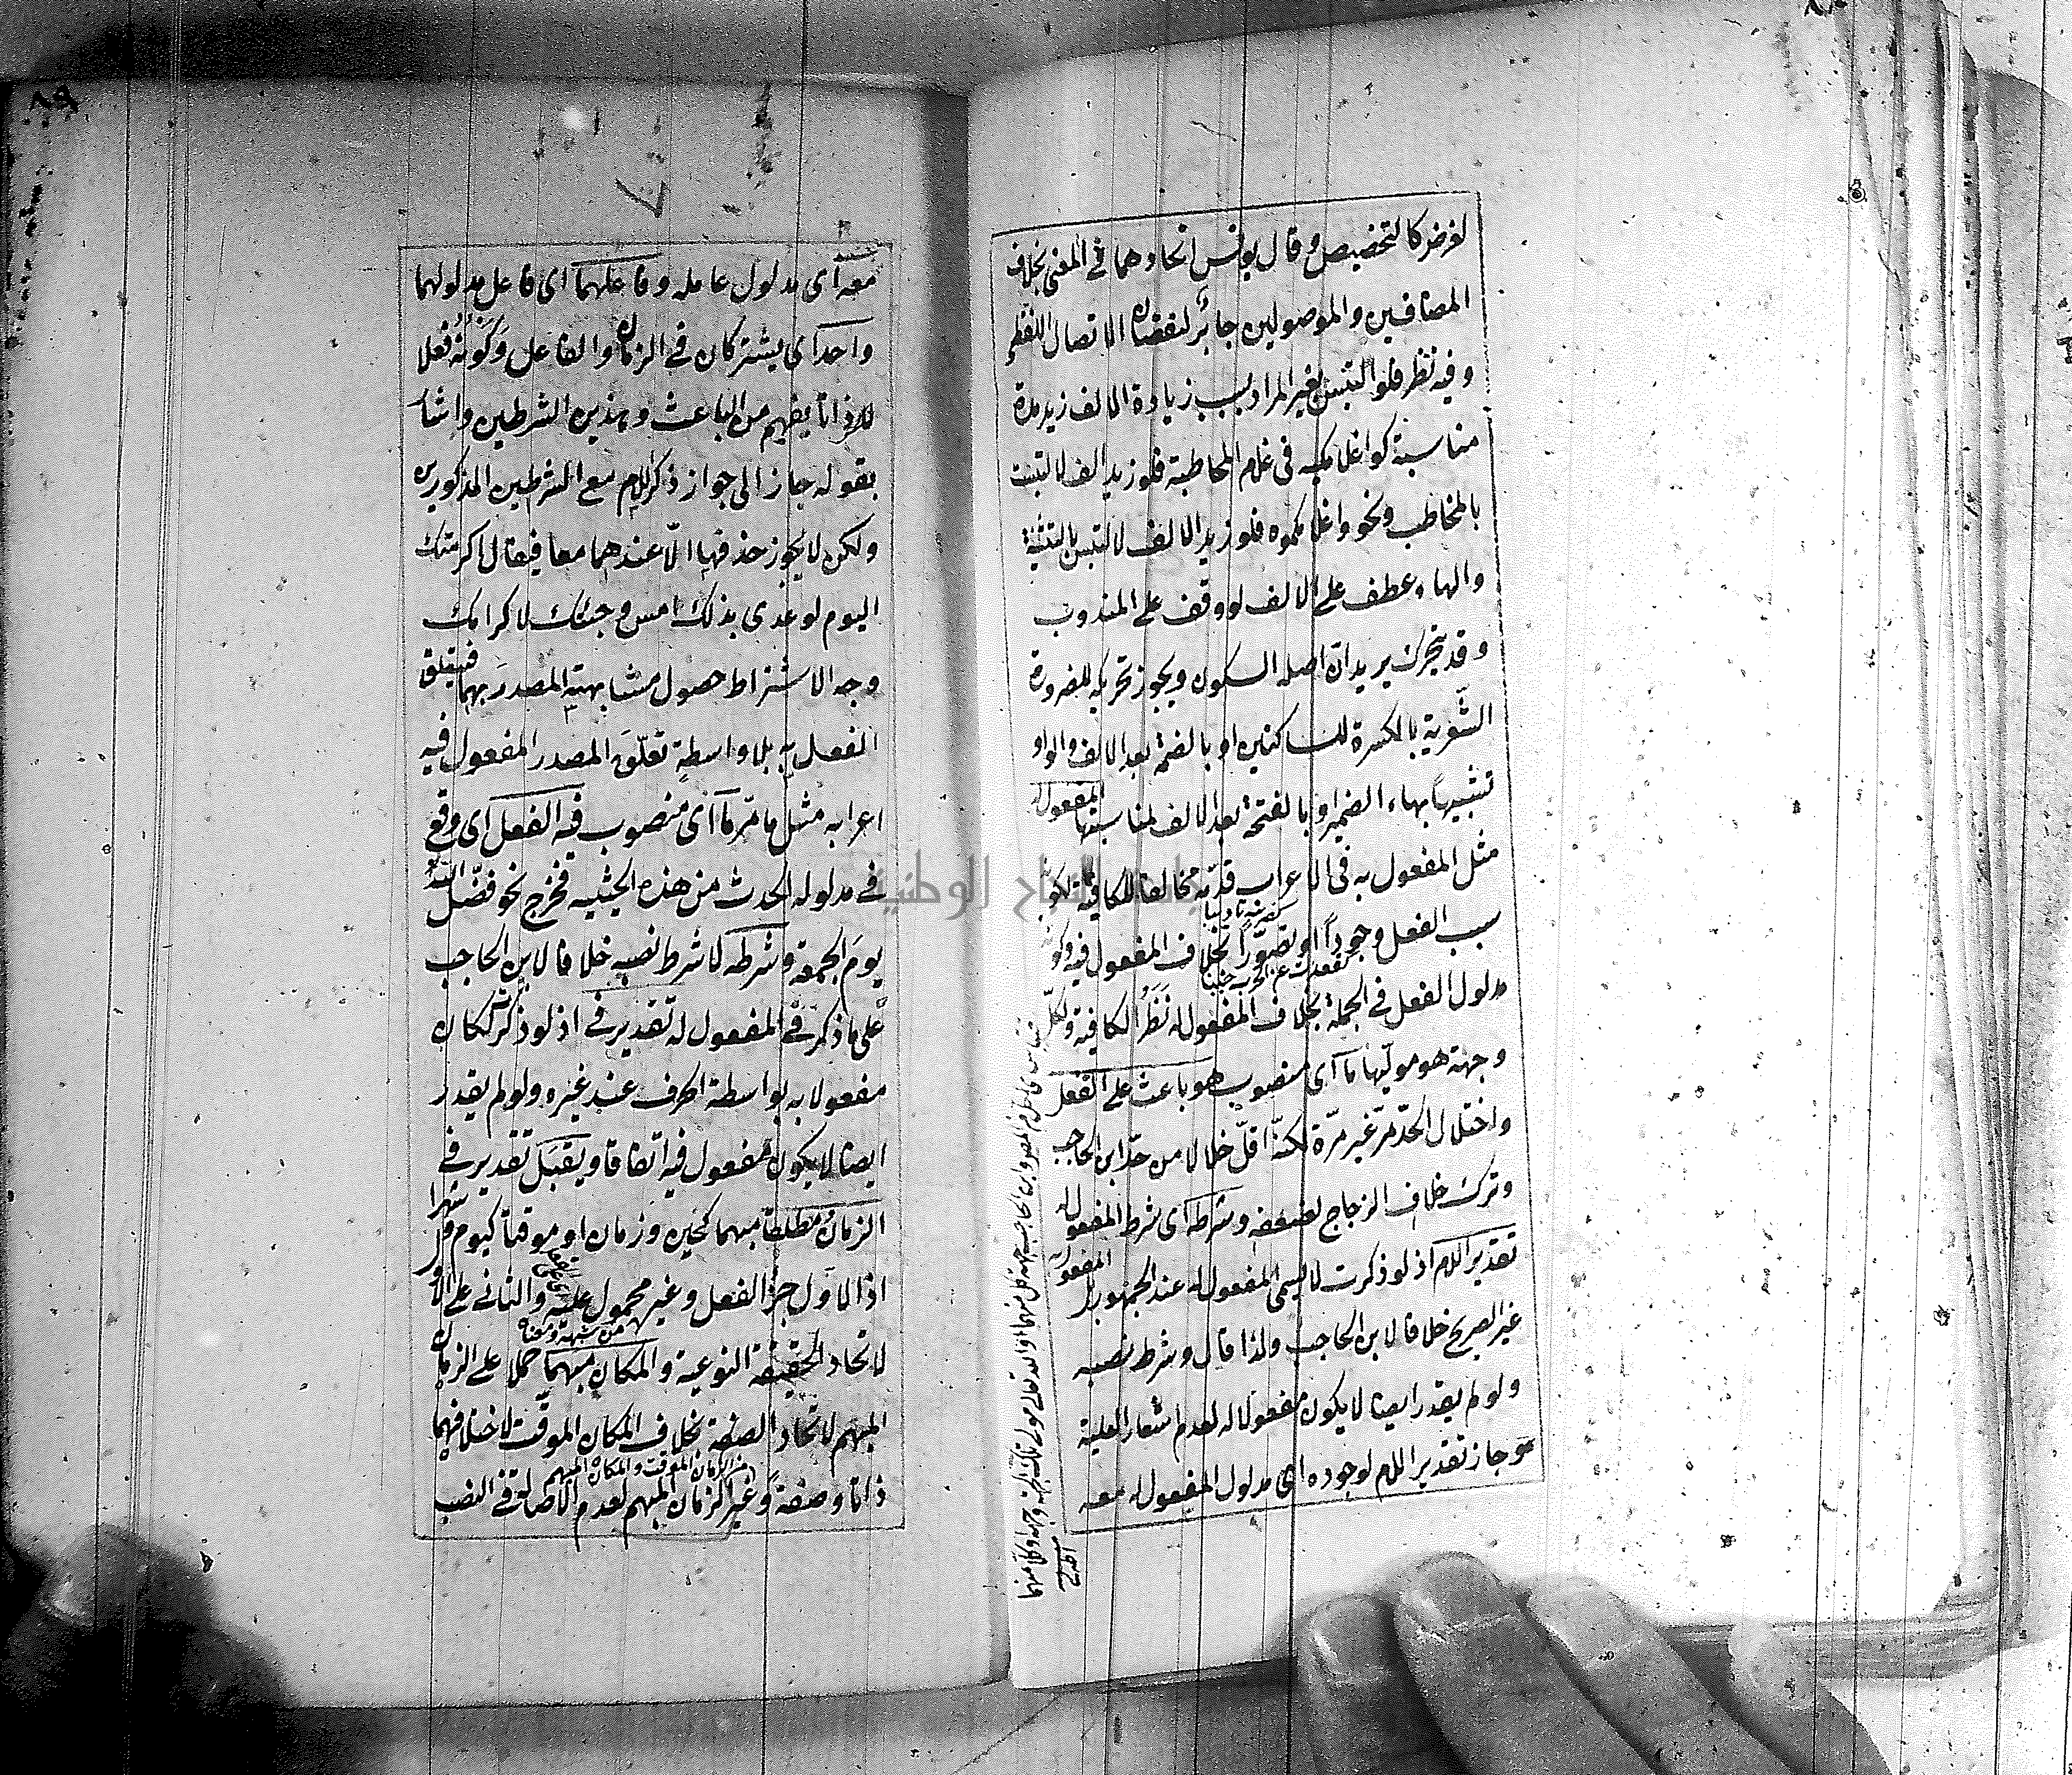 لغرض كالتخصيص وقال يونس اتحادهما في المعنى بخلاف
المضافين والموصولين جائز لنقصان الاتصال اللفظي
وفيه نظر فلو التبس بغير المراد بسبب زيادة الالف زيد مدة
مناسبة كواغلامكيه في غلام المخاطبة فلو زيد الف لالتبست
بالمخاطب ونحو واغلامكموه فلو زيد الالف لالتبس بالتثنية
والهاء عطف على الالف لو وقف على المندوب
وقد يتحرك يريد ان اصله السكون ويجوز تحريكه للضرورة
الشعرية بالكسرة للساكنين او بالضمة بعد الالف والواو
تشبيها بهاء الضمير او بالفتحة بعد الالف لمناسبتها المفعول له
مثل المفعول به في الاعراب قدمه مخالفا للكافية لكونه
سبب الفعل وجودا او تصورا بخلاف المفعول فيه وكونه
مدلول الفعل في الجملة بخلاف المفعول له نظر الكافية ولكل
وجهة هو موليها ما اى منصوب هو باعث على الفعل
واختلال الحد مر غير مرة لكنه اقل خللا من حد ابن الحاجب
وترك خلاف الزجاج لضعفه وشرطه اى شرط المفعول له
تقدير اللام اذ لو ذكرت لا يسمى المفعول له عند الجمهور بل المفعول به
غير الصريح خلافا لابن الحاجب ولذا قال وشرط نصبه
ولو لم يقدر ايضا لا يكون مفعولا له لعدم اشعار العلية
وجاز تقدير اللام لوجوده اى مدلول المفعول له معه
معه اى مدلول عامله وفاعلهما اى فاعل مدلولهما
واحد اى يشتركان في الزمان والفاعل وكونه فعلا
يفهم من الباعث وبهذين الشرطين واشار
بقوله جاز الى جواز ذكر اللام مع الشرطين المذكورين
ولكن لا يجوز حذفها الا عندهما معا فيقال اكرمتك
اليوم لوعدى بذلك امس وجئتك لاكرامك
وجه الاشتراط حصول مشابهته المصدر بهما فيتعلق
الفعل به بلا واسطة تعلق المصدر المفعول فيه
اعرابه مثل ما مر ما اى منصوب فيه الفعل اى وقع
في مدلوله الحدث من هذه الحيثية فخرج نحو فضل الله
يوم الجمعة وشرطه لا شرط نصبه خلافا لابن الحاجب
على ما ذكر في المفعول له تقدير في اذ لو ذكرت لكان
مفعولا به بواسطة الحرف عند غيره ولو لم يقدر
ايضا لا يكون مفعول فيه اتفاقا ويقبل تقدير في
الزمان مطلقا مبهما كحين وزمان او موقتا كيوم وشهر
اذ الاول جزء الفعل وغير محمول عليه والثاني على الاول
لاتحاد الحقيقة النوعية والمكان مبهما حملا على الزمان
المبهم لاتحاد الصفة بخلاف المكان الموقت لاختلافهما
من الزمان الموقت والمكان المبهم
ذاتا وصفة وغير الزمان المبهم لعدم الاصالة في النصب